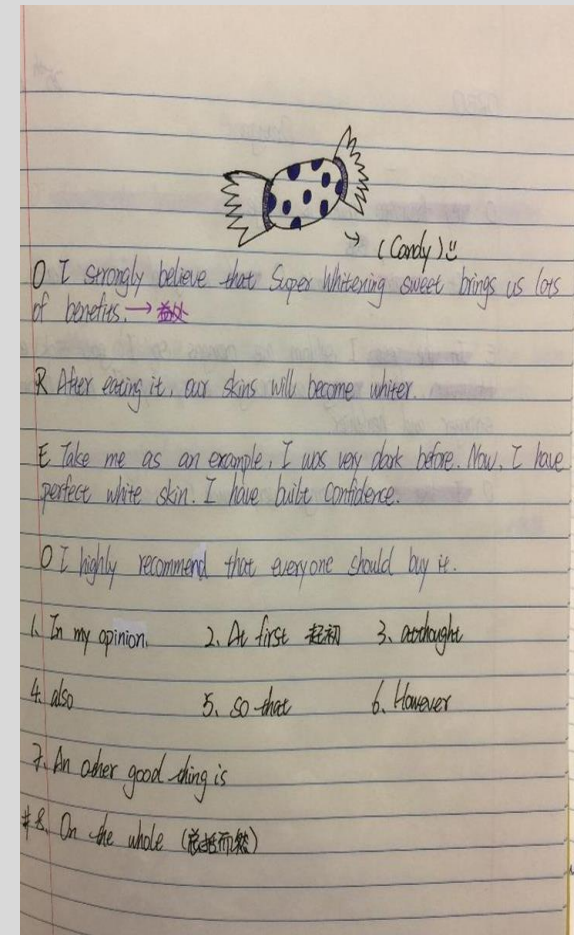 (Candy)
O I strongly believe that Super Whitening sweet brings us lots
of benefits. → 益处
R After eating it, our skins will become whiter.
E Take me as an example, I was very dark before. Now, I have
perfect white skin. I have built confidence.
O I highly recommend that everyone should buy it.
1. In my opinion. 2. At first 起初 3. 
4. also 5. so that 6. However
7. An other good thing is
*8. On the whole (总括而)